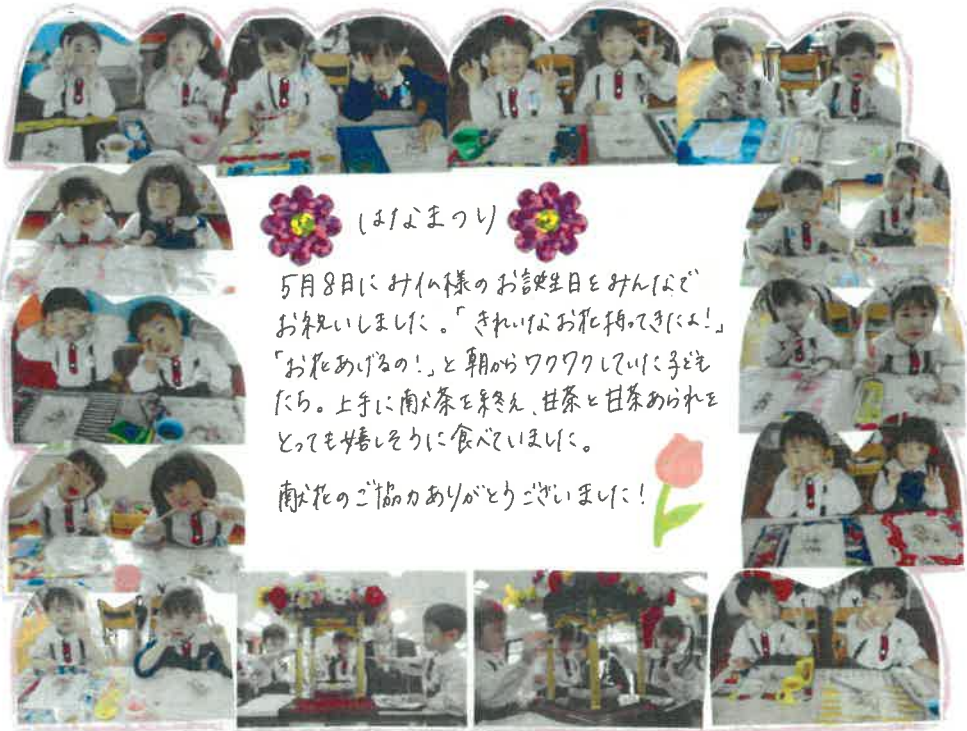 はなまつり
5月8日にみ仏様のお誕生日をみんなで
お祝いしました。「きれいなお花持ってきたよ!」
「お花あげるの!」と朝からワクワクしていた子ども
たち。上手に献茶を終え、甘茶と甘茶あられを
とっても嬉しそうに食べていました。
献花のご協力ありがとうございました!